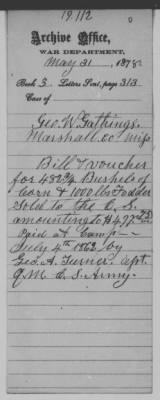 19.112
Archive Office,
WAR DEPARTMENT,
May 31, 1878
Book 3, Letters Sent, page 313
Case of
Geo. W. Gathings.
Marshall. Co Miss.
Bill & voucher
for 482¾ Bushels of
Corn & 1000 lbs Fodder
sold to the C. S.
amounting to $477.75
Paid at Camp —
July 4th 1862 by
Geo. A. Turner. Capt.
Q. M. C. S. Army.